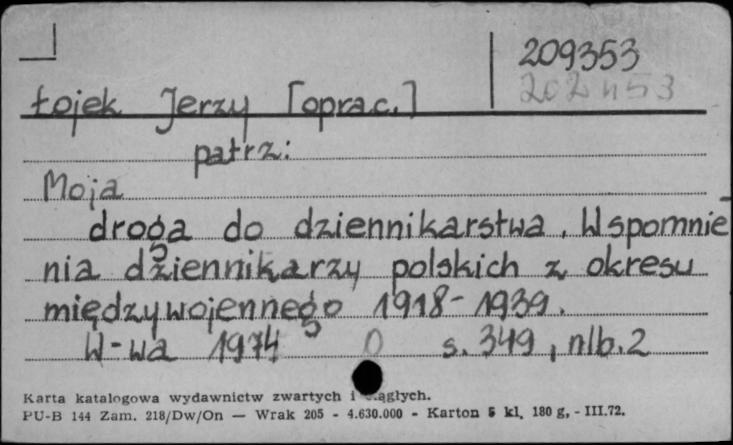 209353
Łojek Jerzy [oprac.]
patrz:
Moja
droga do dziennikarstwa. Wspomnie-
nia dziennikarzy polskich z okresu
międzywojennego 1918-1939.
W-wa 1974 0 s. 349, nlb. 2
Karta katalogowa wydawnictw zwartych i ciągłych.
PU-B 144 Zam. 218/Dw/On — Wrak 205 - 4.630.000 - Karton 5 kl, 180 g, - III.72.